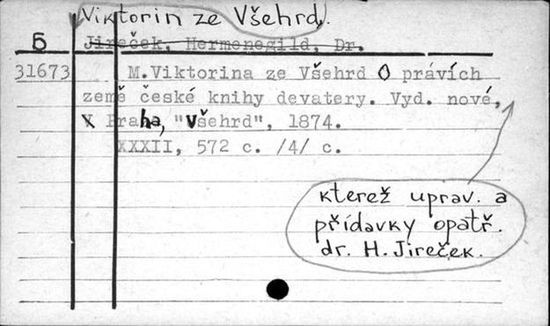 Viktorin ze Všehrd.
5
Jireček, Hermenegild, Dr.
31673 M.Viktorina ze Všehrd O právích
země české knihy devatery. Vyd. nové,
X Praha, "Všehrd", 1874.
XXXII, 572 c. /4/ c.
kterež uprav. a
přídavky opatř.
dr. H. Jireček.